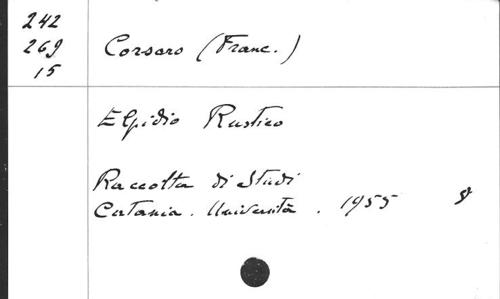 242
269
15
Corsaro (Franc.)
Elpidio Rustico
Raccolta di Studi
Catania. Università. 1955 8º